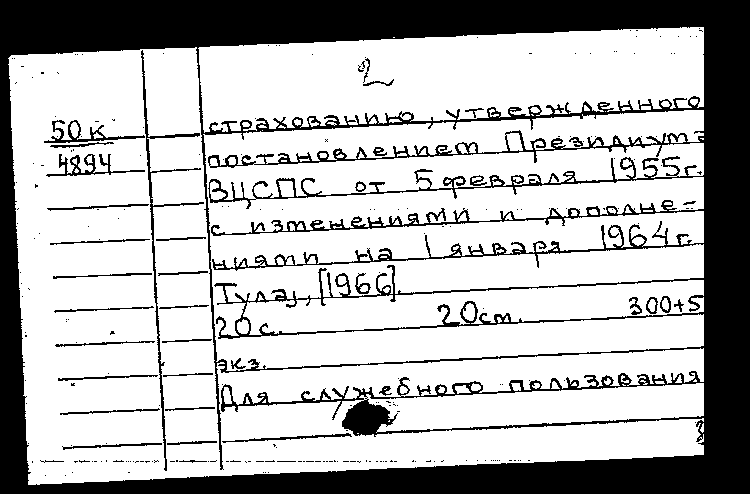 2
50к
4894
страхованию, утвержденного
постановлением Президиума
ВЦСПС от 5 февраля 1955г.
с изменениями и дополне=
ниями на 1 января 1964г.
Тула, [1966].
20с. 20см. 300+5
экз.
Для служебного пользования